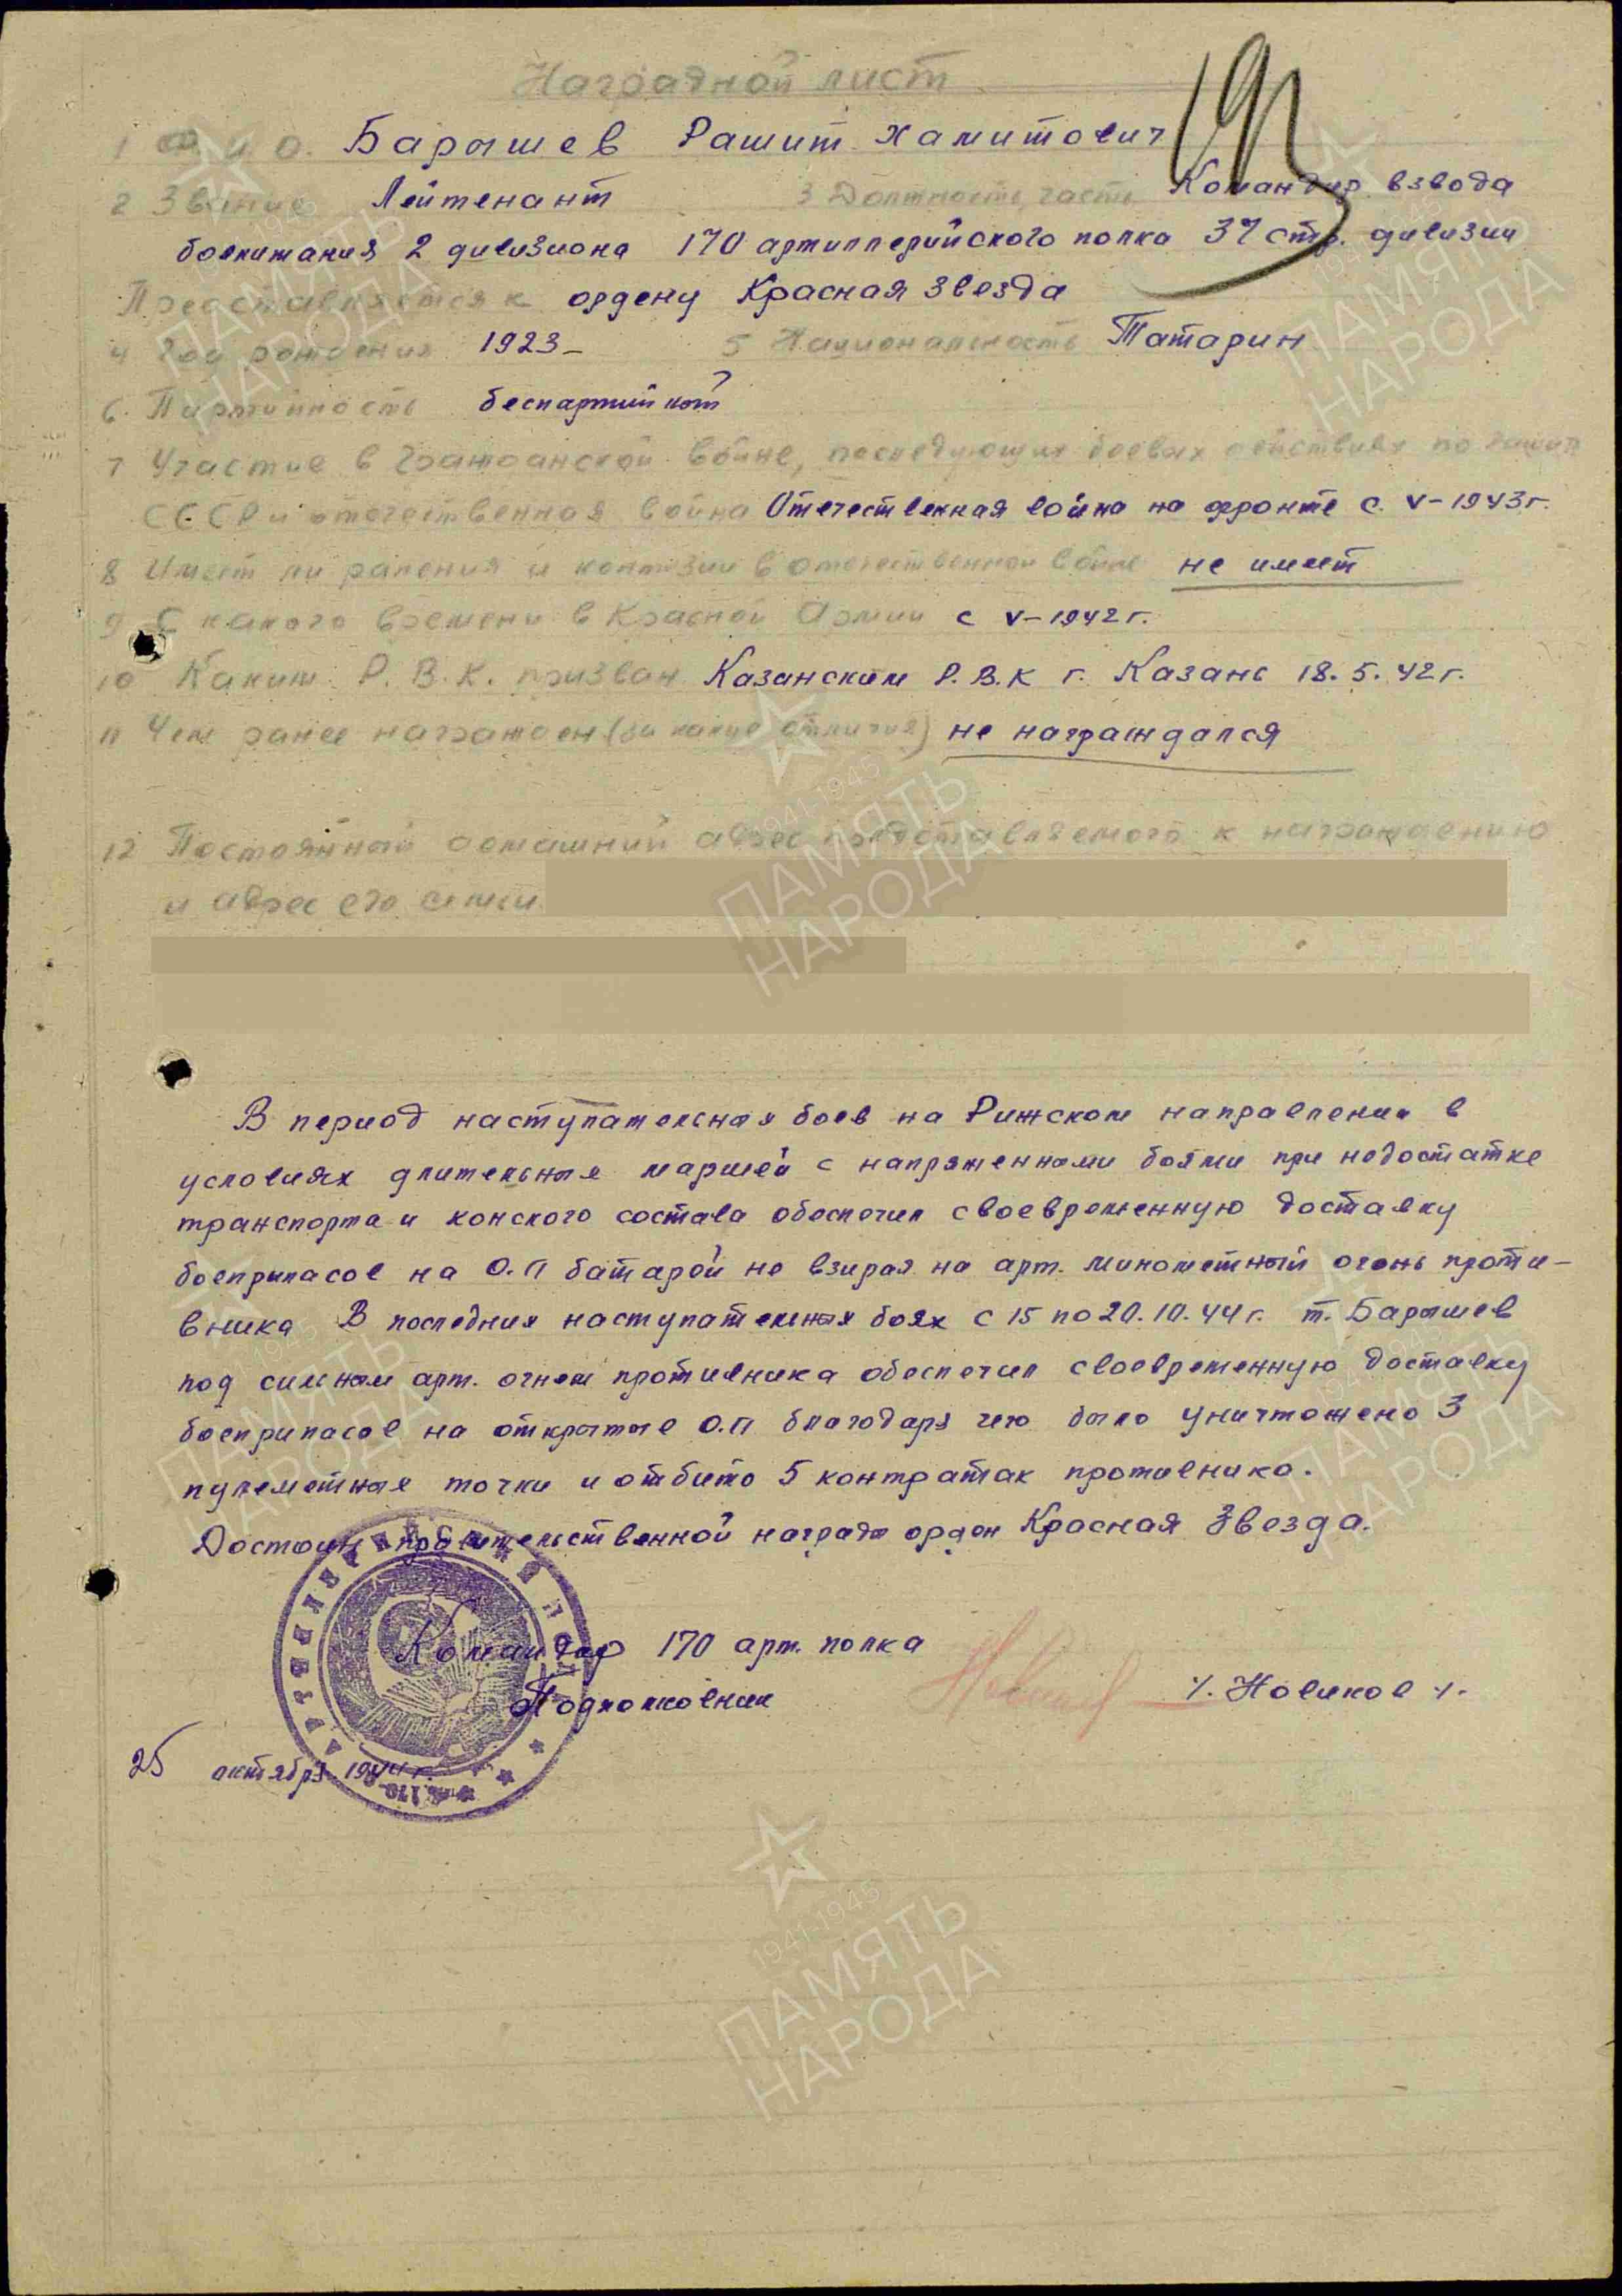 Наградной лист
193
1 Ф и О. Барышев Рашит Хамитович
2 Звание Лейтенант 3 Должность, часть Командир взвода
боепитания 2 дивизиона 170 артиллерийского полка 37 стр. дивизии
Представляется к ордену Красная Звезда
4 Год рождения 1923 – 5 Национальность Татарин
6. Партийность беспартийный
7 Участие в Гражданской войне, последующих боевых действиях по защите
СССР и отечественная война Отечественная война на фронте с V–1943г.
8 Имеет ли ранения и контузии в отечественной войне не имеет
9 С какого времени в Красной Армии с V–1942г.
10 Каким Р.В.К. призван Казанским Р.В.К г. Казань 18.5.42г.
11 Чем ранее награжден (за какие отличия) не награждался
12 Постоянный домашний адрес представляемого к награждению
и адрес его семьи
В период наступательных боев на Рижском направлении в
условиях длительных маршей с напряженными боями при недостатке
транспорта и конского состава обеспечил своевременную доставку
боеприпасов на О.П батарей не взирая на арт. минометный огонь проти–
вника В последних наступательных боях с 15 по 20.10.44г. т. Барышев
под сильным арт. огнем противника обеспечил своевременную доставку
боеприпасов на открытые О.П благодаря чего было уничтожено 3
пулеметные точки и отбито 5 контратак противника.
Достоин правительственной награды орден Красная Звезда.
Командир 170 арт. полка
Подполковник /. Новиков /.
25 октября 1944 г.
1941-1945
ПАМЯТЬ
НАРОДА